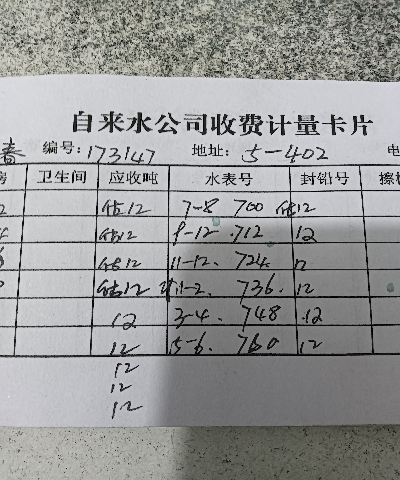 自来水公司收费计量卡片
春 编号: 173147 地址: 5-402 电
房 卫生间 应收吨 水表号 封铅号 擦
2 估12 7-8 700 估12
4 估12 9-12 712 12
估12 11-12. 724. 12
估12 1-2. 736. 12
12 3-4. 748 12
12 5-6. 760 12
12
12
12